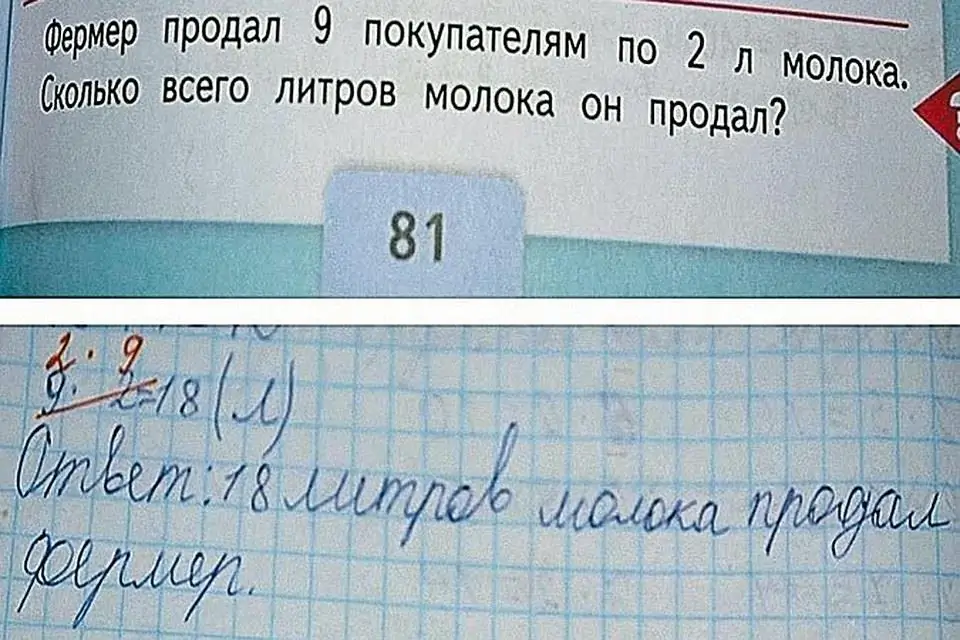 Фермер продал 9 покупателям по 2 л молока.
Сколько всего литров молока он продал?
81
2 · 9
9 · 2 = 18 (л)
Ответ: 18 литров молока продал
фермер.